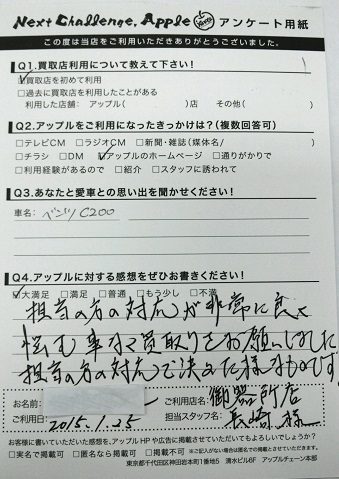 Next Challenge. Apple アンケート用紙
この度は当店をご利用いただきありがとうございました。
Q1.買取店利用について教えて下さい!
□買取店を初めて利用
□過去に買取店を利用したことがある
利用した店舗: アップル( )店 その他( )
Q2.アップルをご利用になったきっかけは?(複数回答可)
□テレビCM □ラジオCM □新聞・雑誌(媒体名/ )
□チラシ □DM □アップルのホームページ □通りがかりで
□利用経験があるので □紹介 □スタッフに誘われて
Q3.あなたと愛車との思い出を聞かせください!
車名: ベンツC200
Q4.アップルに対する感想をぜひお書きください!
□大満足 □満足 □普通 □もう少し □不満
担当の方の対応が非常に良く
悩む事なく買取りをお願いしました
担当の方の対応で決めた様なものです。
お名前: ご利用店名: 御器所店
ご利用日: 2015.1.25 担当スタッフ名: 長崎様
お客様に書いていただいた感想を、アップルHPや広告に掲載させていただいてもよろしいでしょうか?
□実名で掲載可 □匿名なら掲載可 □掲載不可 ※ご記入がない場合は匿名での掲載とさせていただきます。
東京都千代田区神田岩本町1番地5 清水ビル6F アップルチェーン本部